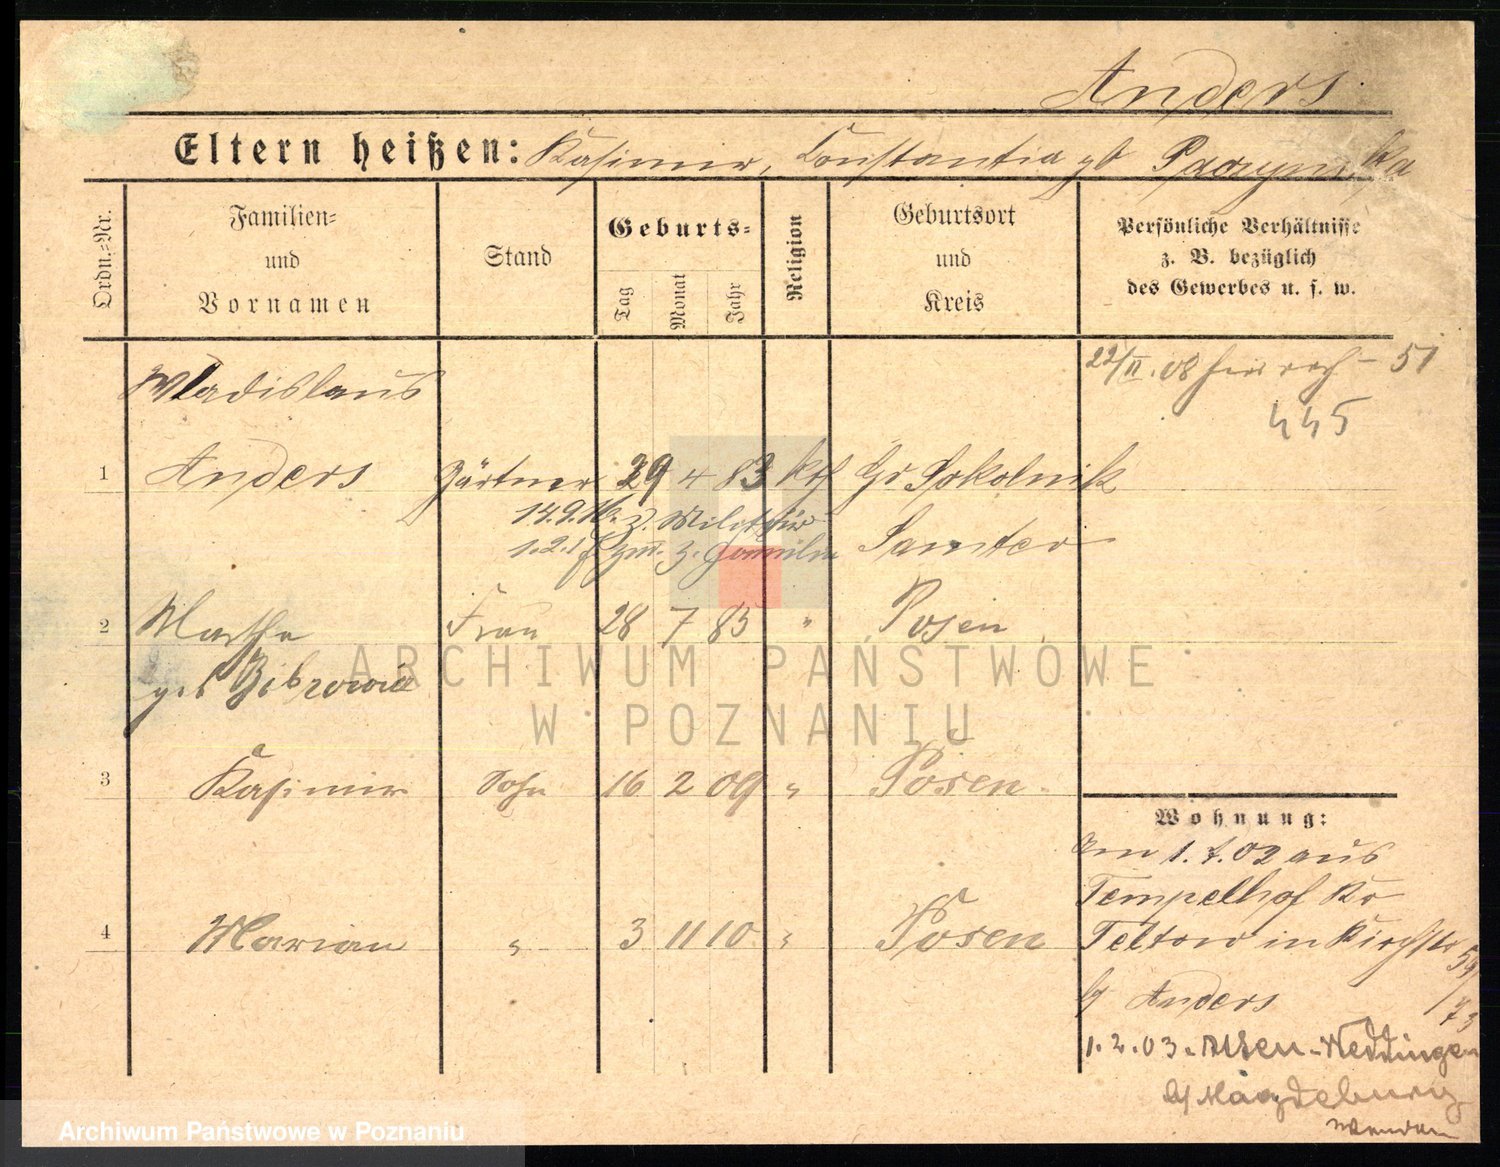 Anders
Eltern heißen: Kasimir, Constantia gb
Ordn.=Nr.
Familien= und Vornamen
Stand
Geburts=
Tag Monat Jahr
Religion
Geburtsort und Kreis
Persönliche Verhältnisse z. B. bezüglich des Gewerbes u. s. w.
22/II.08 51
445
Wladislaus
1 Anders Gärtner 29 4 83 kth Gr Sokolnik
14.9.16. z. Militär
Samter
2 Martha Frau 28 7 85 " Posen
geb
3 Kasimir Sohn 16 2 09 " Posen
4 Marian " 3 11 10 " Posen
Wohnung:
Am 1. 02 aus
Tempelhof Kr
Teltow in Kirchstr 59/73
by Anders
1.2.03. Alten-Weddingen
b/ Magdeburg
ARCHIWUM PAŃSTWOWE
W POZNANIU
Archiwum Państwowe w Poznaniu